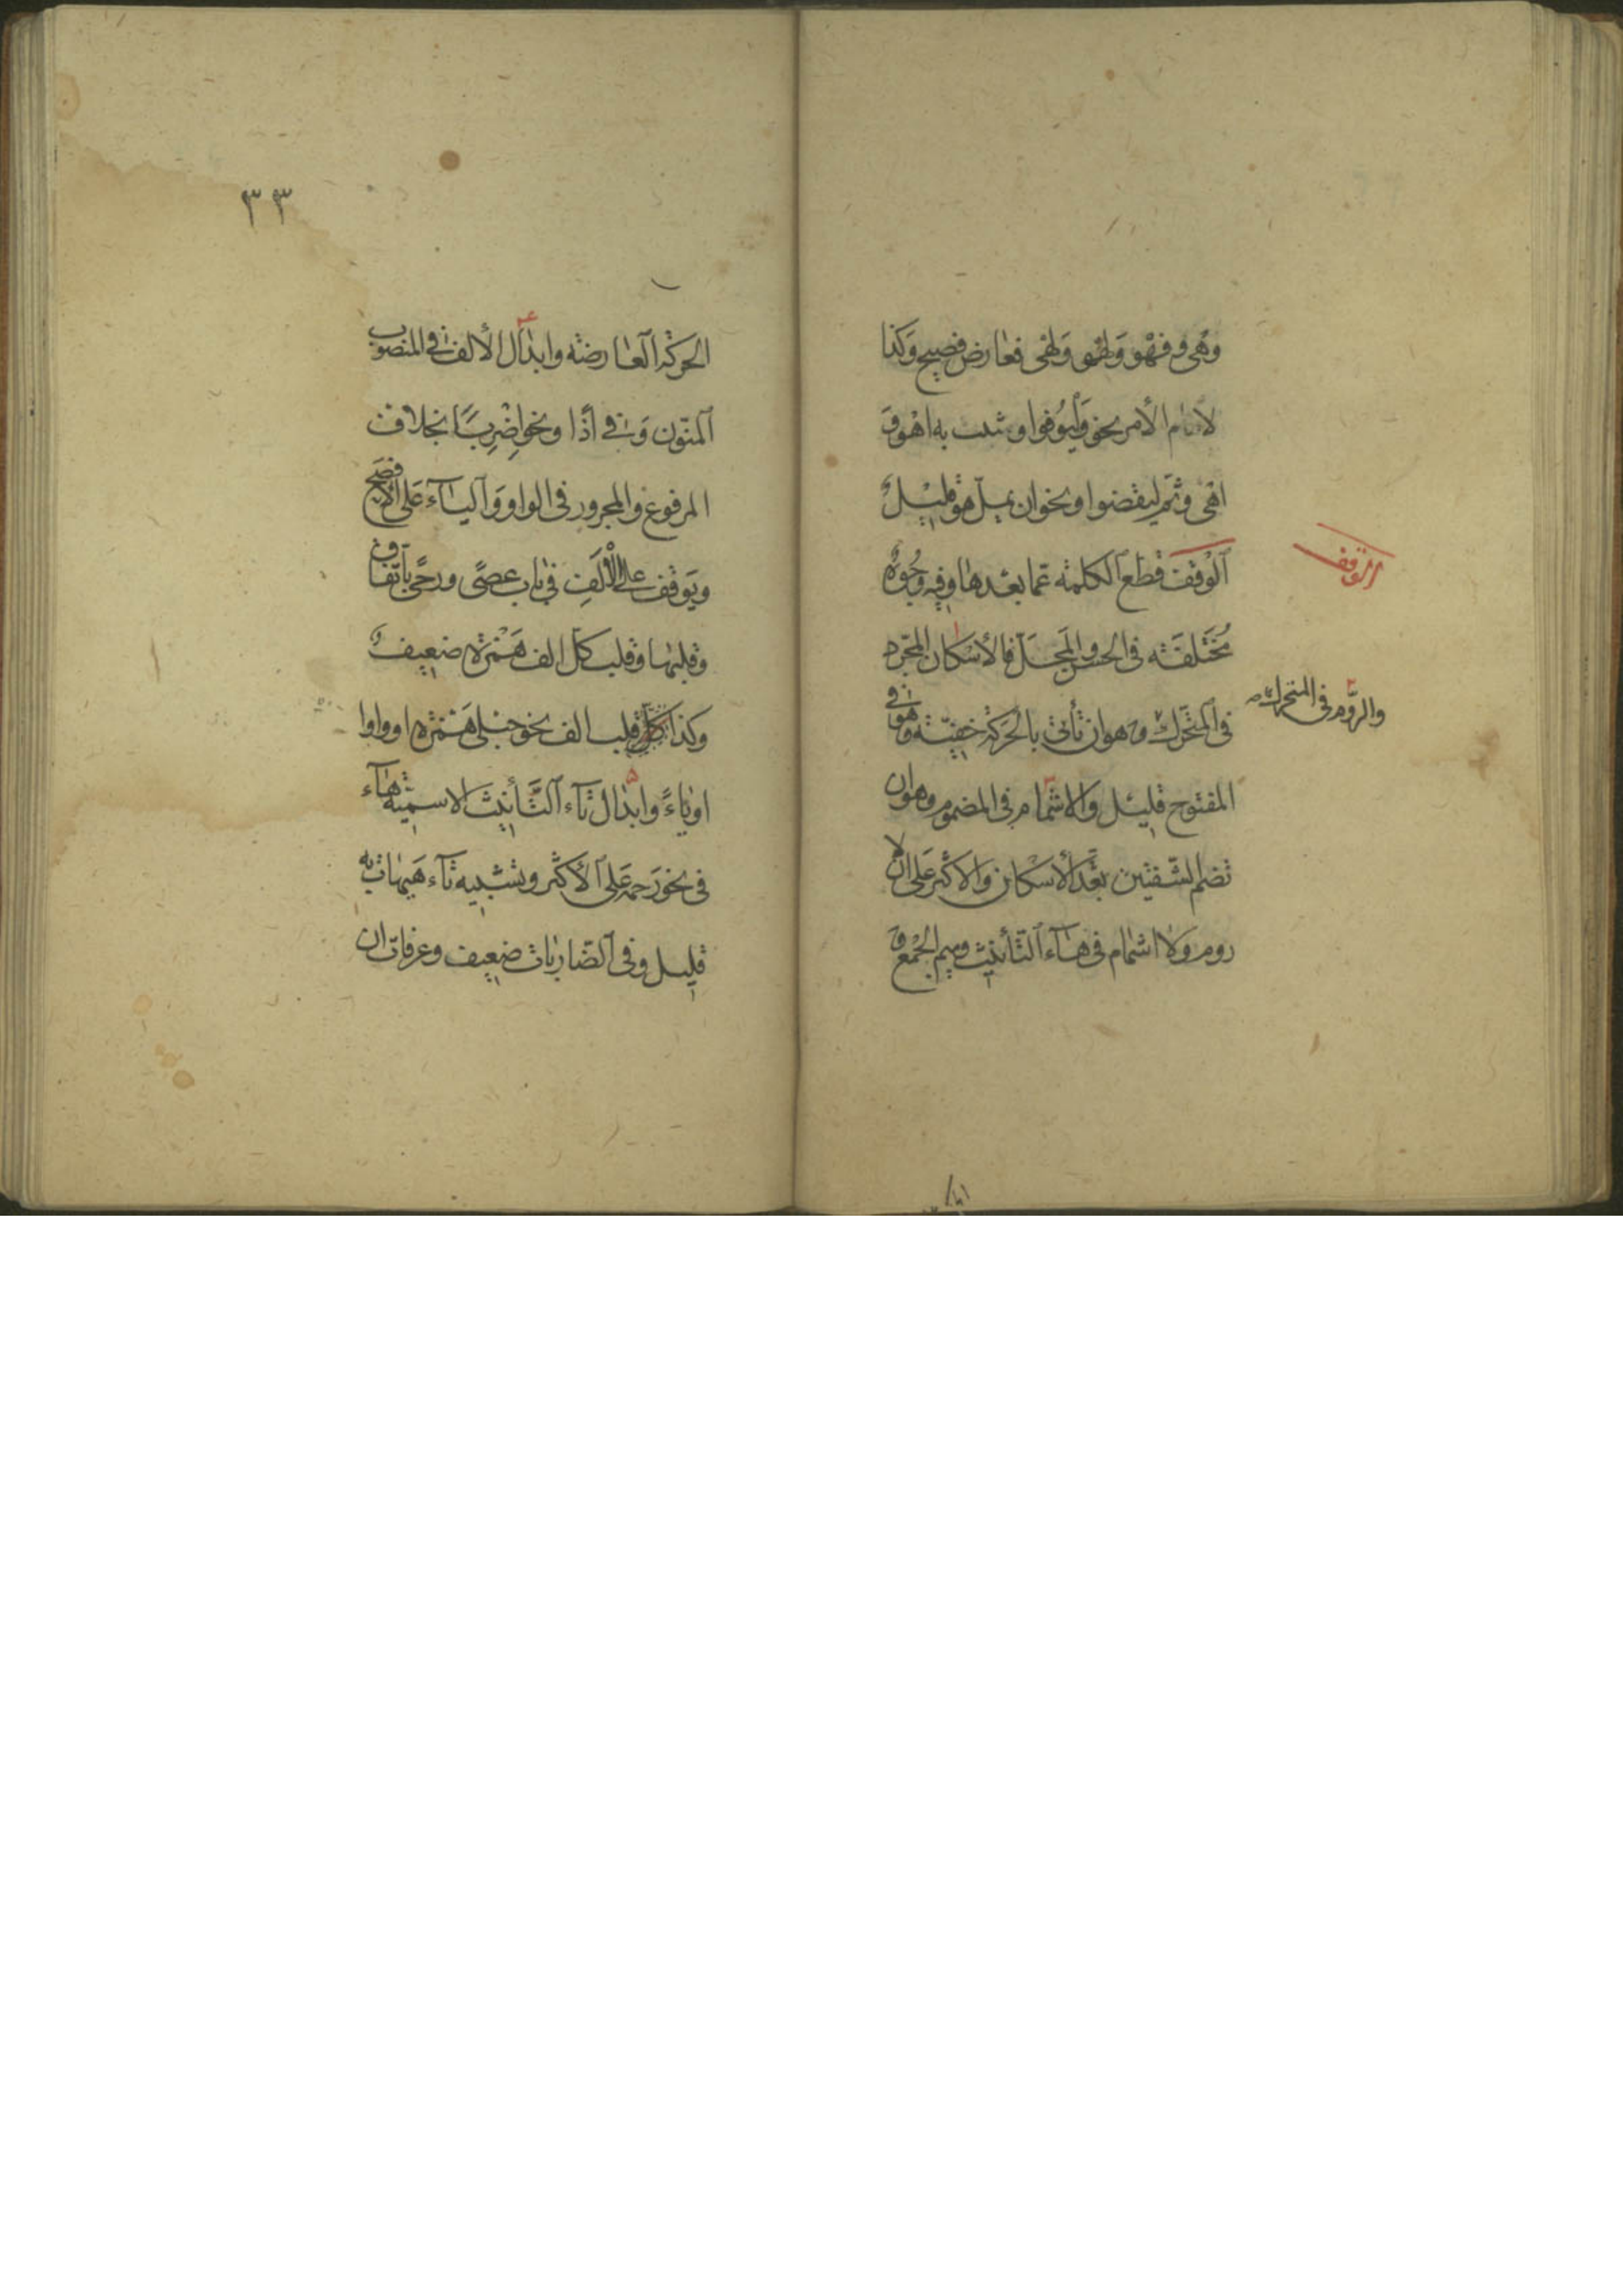 وهْي وفهْو وفهْي ولهْو ولهْي فعارض فصيح وكذا
لام الأمر نحو وليُوفوا وشبّه به اهْو و
اهْي وثم ليقضوا ونحو ان يملّ هو قليلٌ
الوقف قطع الكلمة عما بعدها وفيه وجُوهٌ
مُختلفة فى الحسن والمحلّ فالاسكان المجرّد
فى المتحرك وهو ان تأتى بالحركة خفيّة وهو فى
المفتوح قليل والاشمام فى المضموم وهو ان
تضم الشّفتين بعْدَ الأسكان والاكثر على ان لا
روم ولا اشمام فى هاء التّأنيث وميم الجمْع و
الوقف
والرّوم فى المتحرك صح
٣٣
الحركة العارضة وابدال الألف فى المنصوب
المنوّن وفى اذًا ونحو اضْرِبَا بخلاف
المرفوع والمجرور فى الواو والياء على الأفصح
ويوقف على الألف فى باب عصًى ورحًى باتّفاق
وقلبها وقلب كل الف هَمْزة ضعيفٌ
وكذا قلب الف نحو حبلى هَمْزة او واوا
او ياءً وابدال تاء التّأنيث الاسميّة هاء
فى نحو رَحمة على الأكثر وتشبيه تاء هَيهات به
قليل وفى الضّاربات ضعيف وعرفات ان